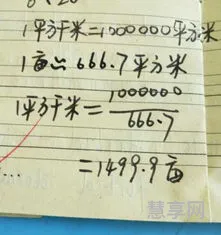 1平方千米=1000000平方米
1亩≈666.7平方米
1平方千米=1000000/666.7
=1499.9亩
慧享网